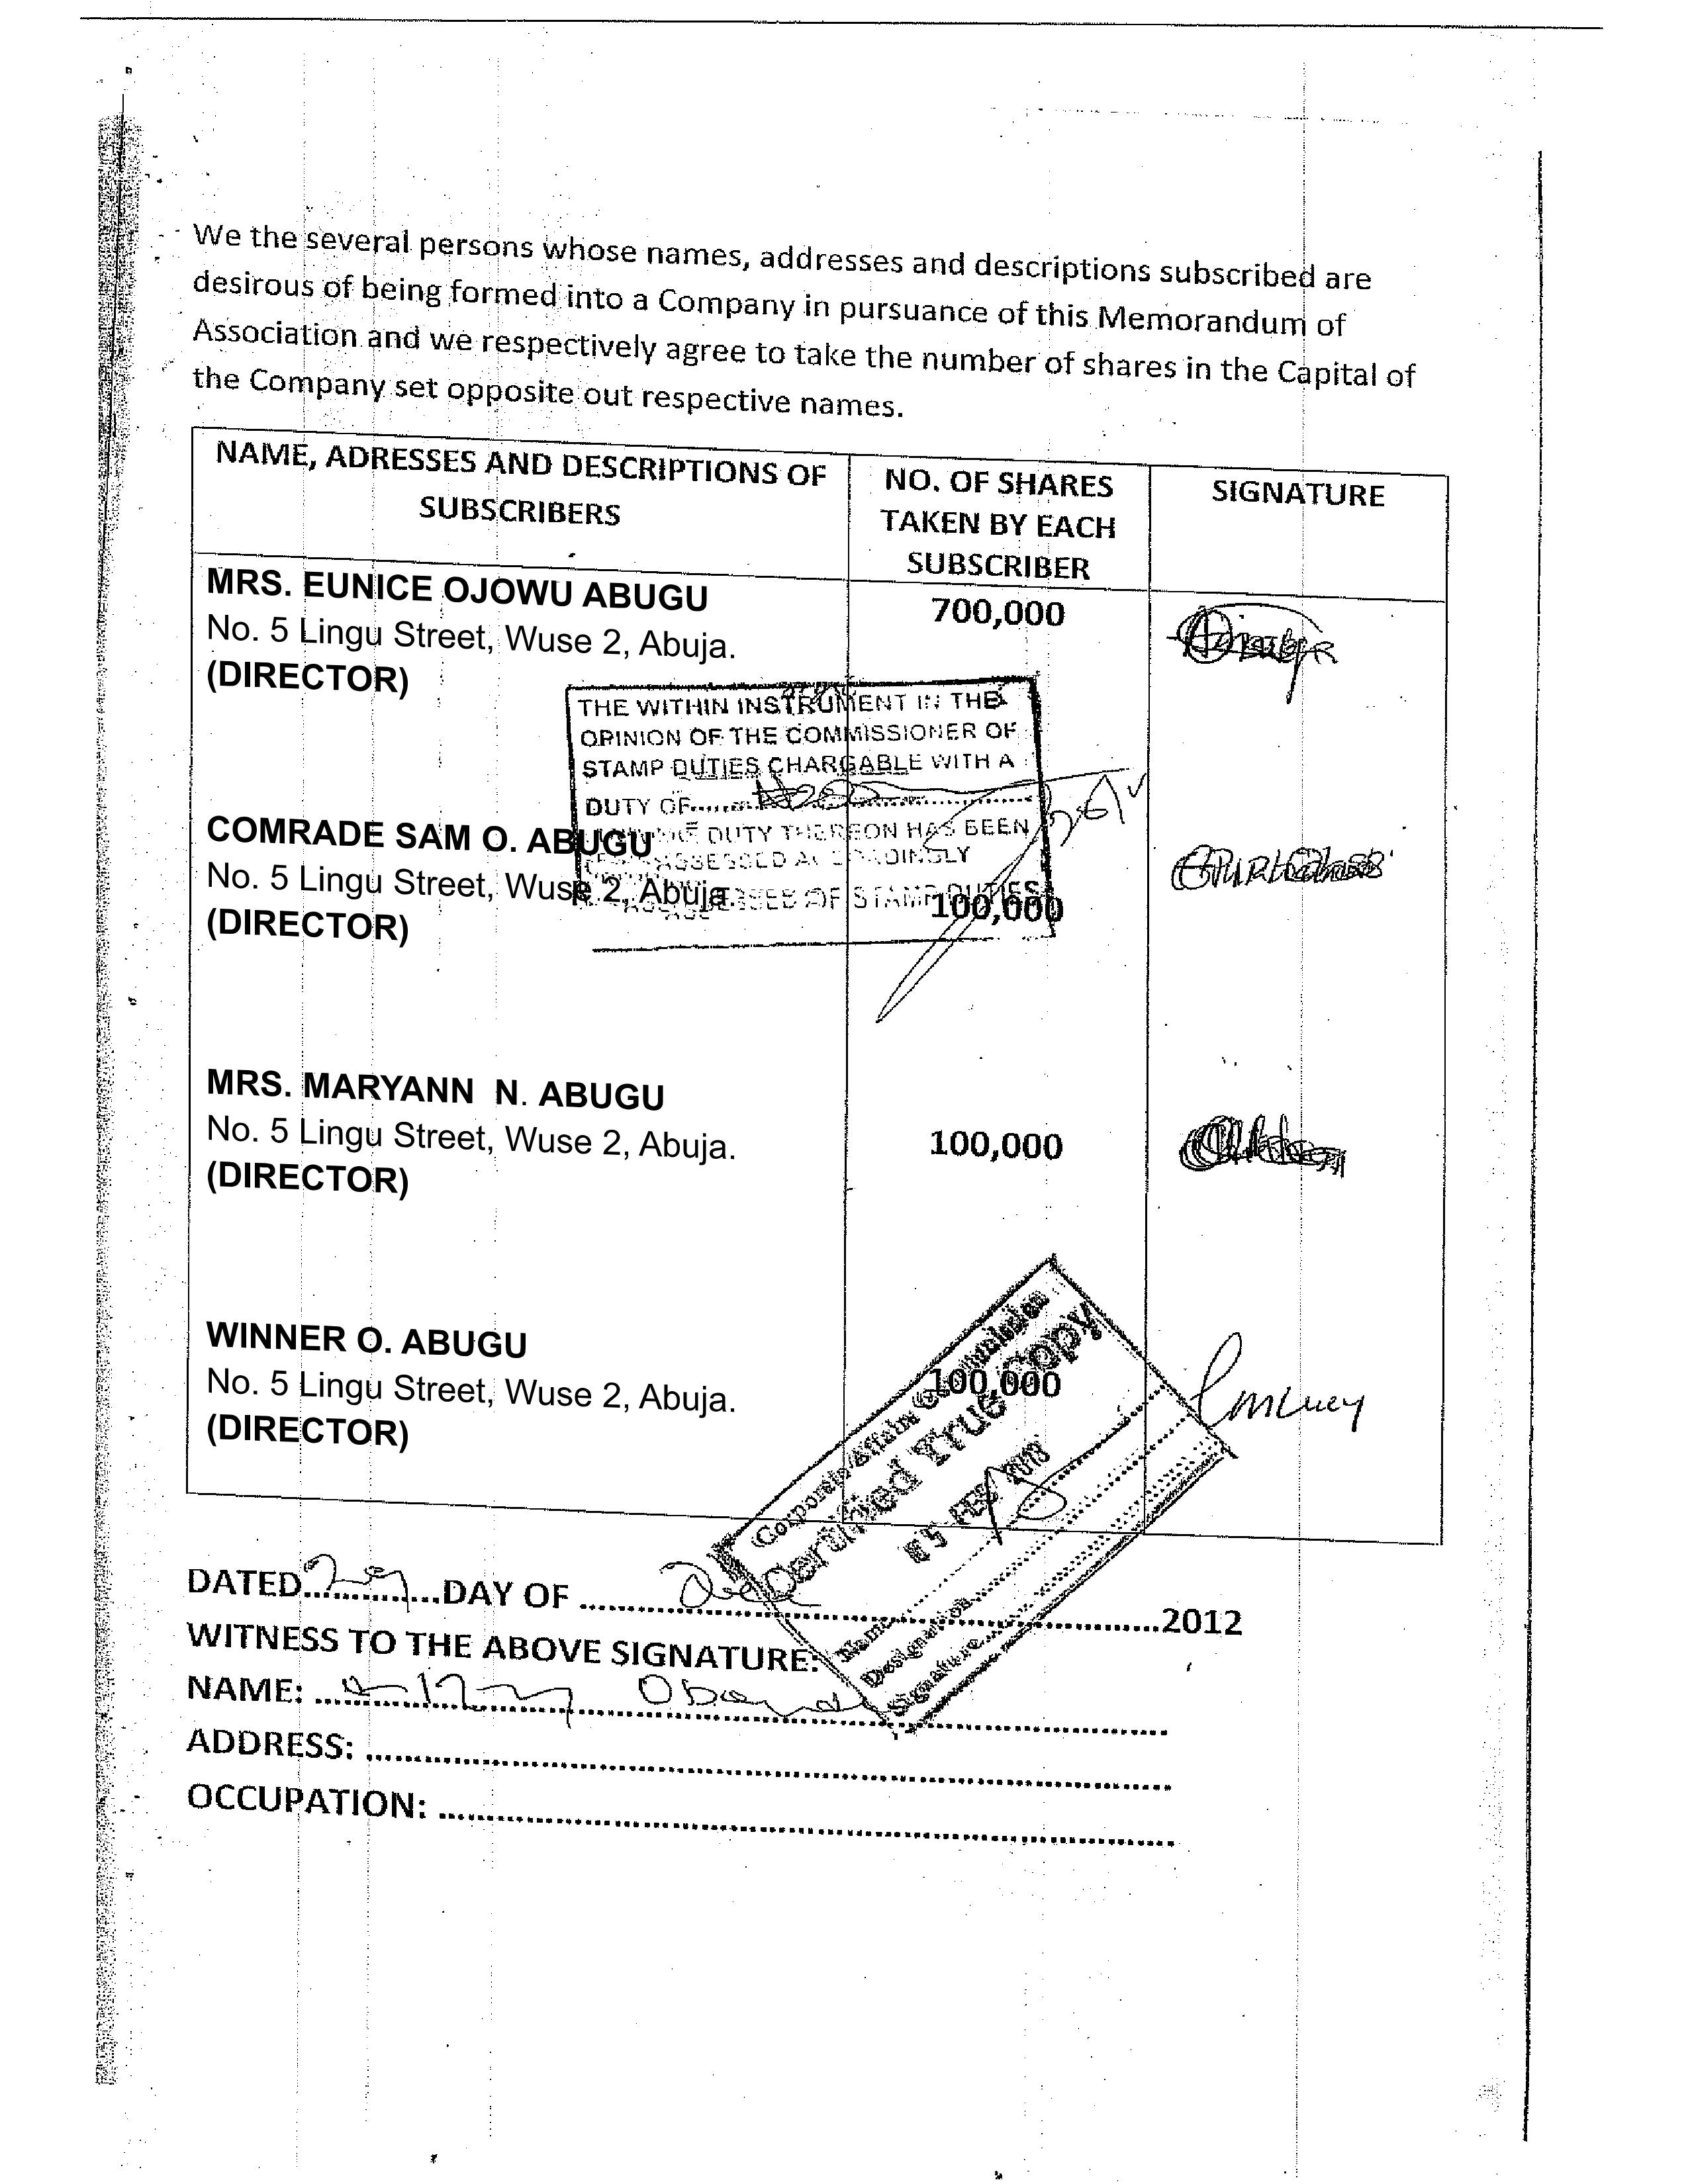 We the several persons whose names, addresses and descriptions subscribed are
desirous of being formed into a Company in pursuance of this Memorandum of
Association and we respectively agree to take the number of shares in the Capital of
the Company set opposite out respective names.
NAME, ADRESSES AND DESCRIPTIONS OF
SUBSCRIBERS
NO. OF SHARES
TAKEN BY EACH
SUBSCRIBER
SIGNATURE
MRS. EUNICE OJOWU ABUGU
No. 5 Lingu Street, Wuse 2, Abuja.
(DIRECTOR)
700,000
THE WITHIN INSTRUMENT IN THE
OPINION OF THE COMMISSIONER OF
STAMP DUTIES CHARGABLE WITH A
DUTY OF
DUTY THEREON HAS BEEN
ASSESSED ACCORDINGLY
OF STAMP DUTIES
COMRADE SAM O. ABUGU
No. 5 Lingu Street, Wuse 2, Abuja.
(DIRECTOR)
100,000
MRS. MARYANN N. ABUGU
No. 5 Lingu Street, Wuse 2, Abuja.
(DIRECTOR)
100,000
WINNER O. ABUGU
No. 5 Lingu Street, Wuse 2, Abuja.
(DIRECTOR)
100,000
Corporate Affairs Commission
Certified True Copy
FEB 2013
Name
Designation
Signature
DATED DAY OF 2012
WITNESS TO THE ABOVE SIGNATURE:
NAME:
ADDRESS:
OCCUPATION: